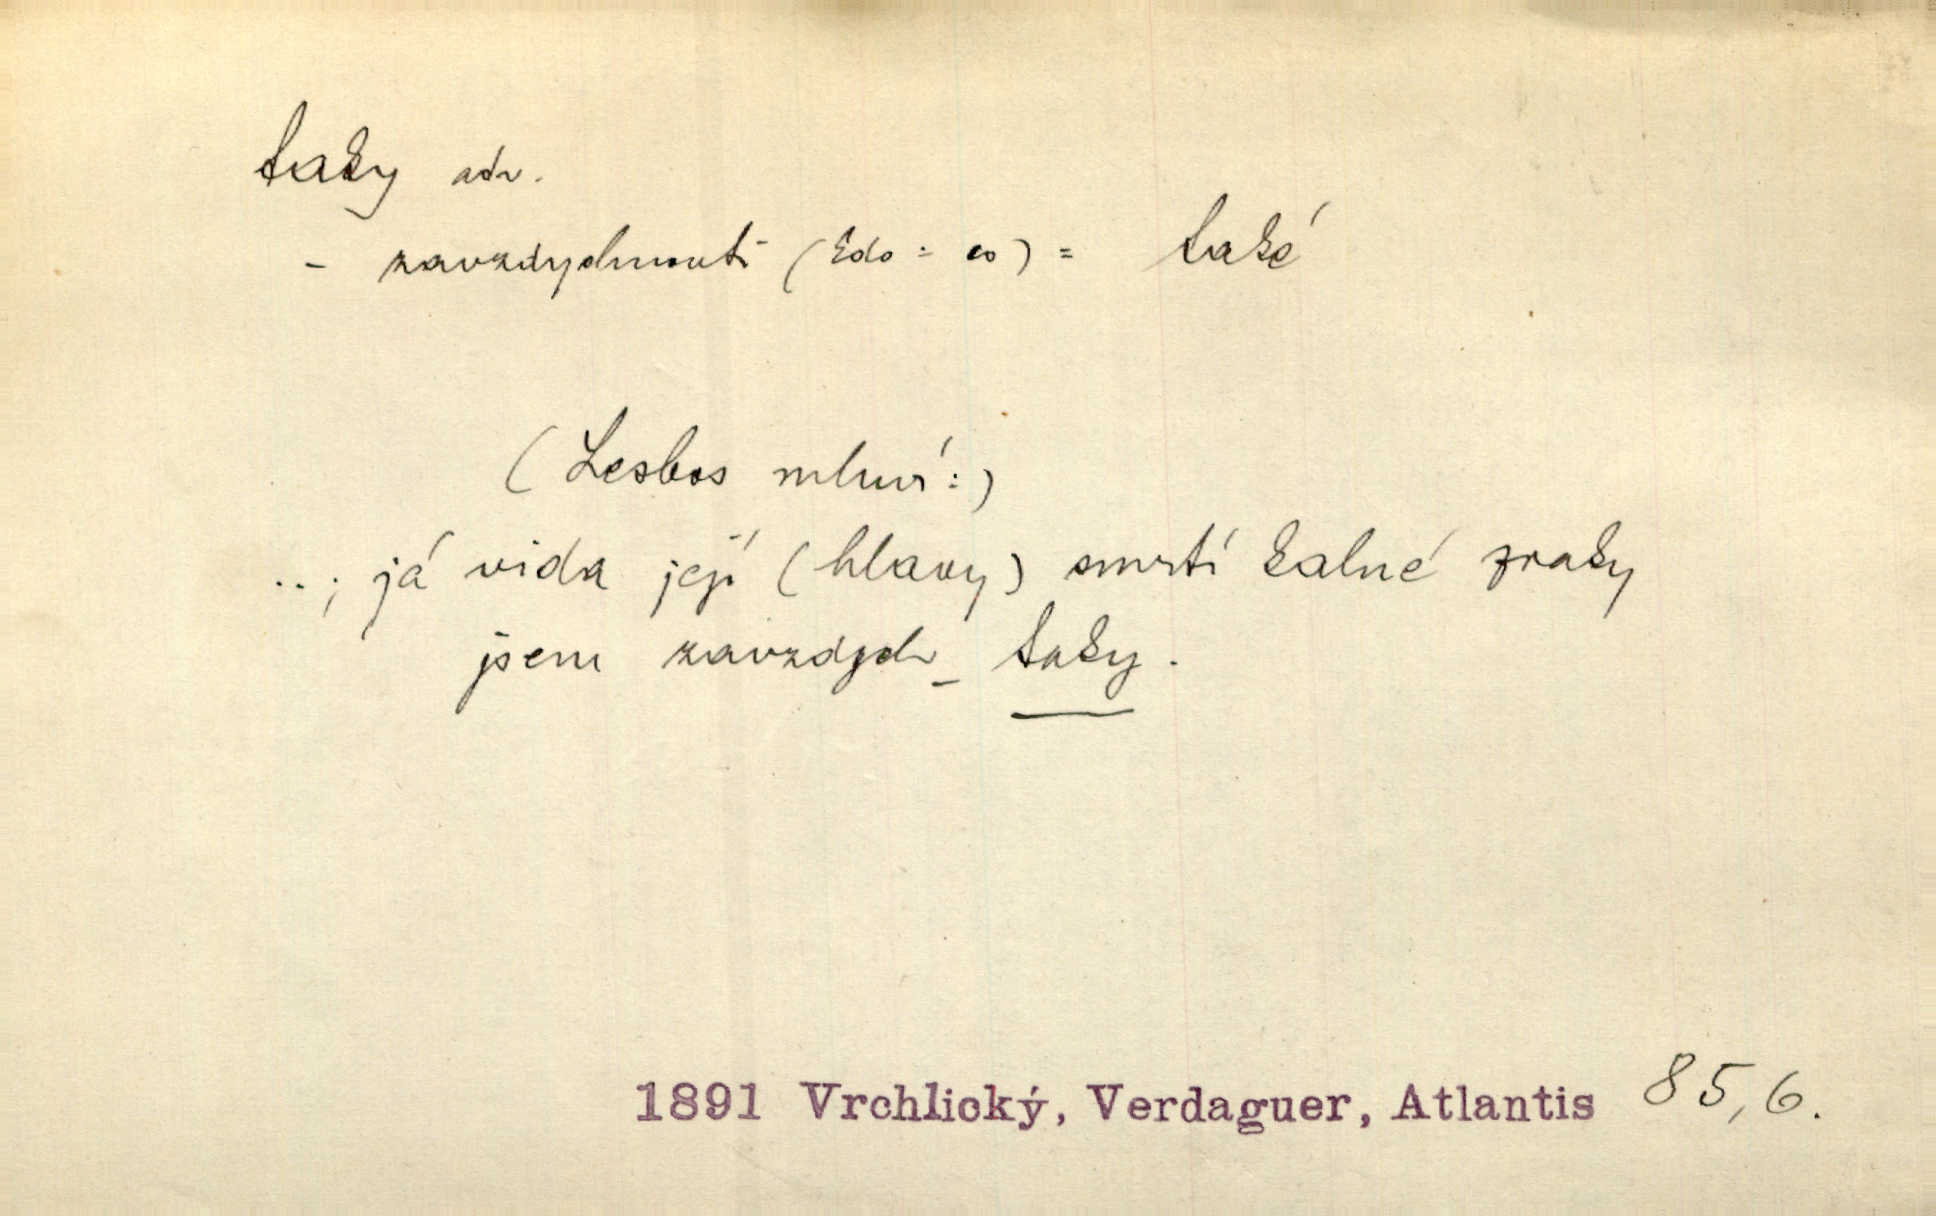 taky adv.
- zavzdychnouti (kdo = co) = také
(Lesbos mluví:)
..; já vida její (hlavy) smrtí kalné zraky
jsem zavzdych_ taky.
1891 Vrchlický, Verdaguer, Atlantis 85,6.